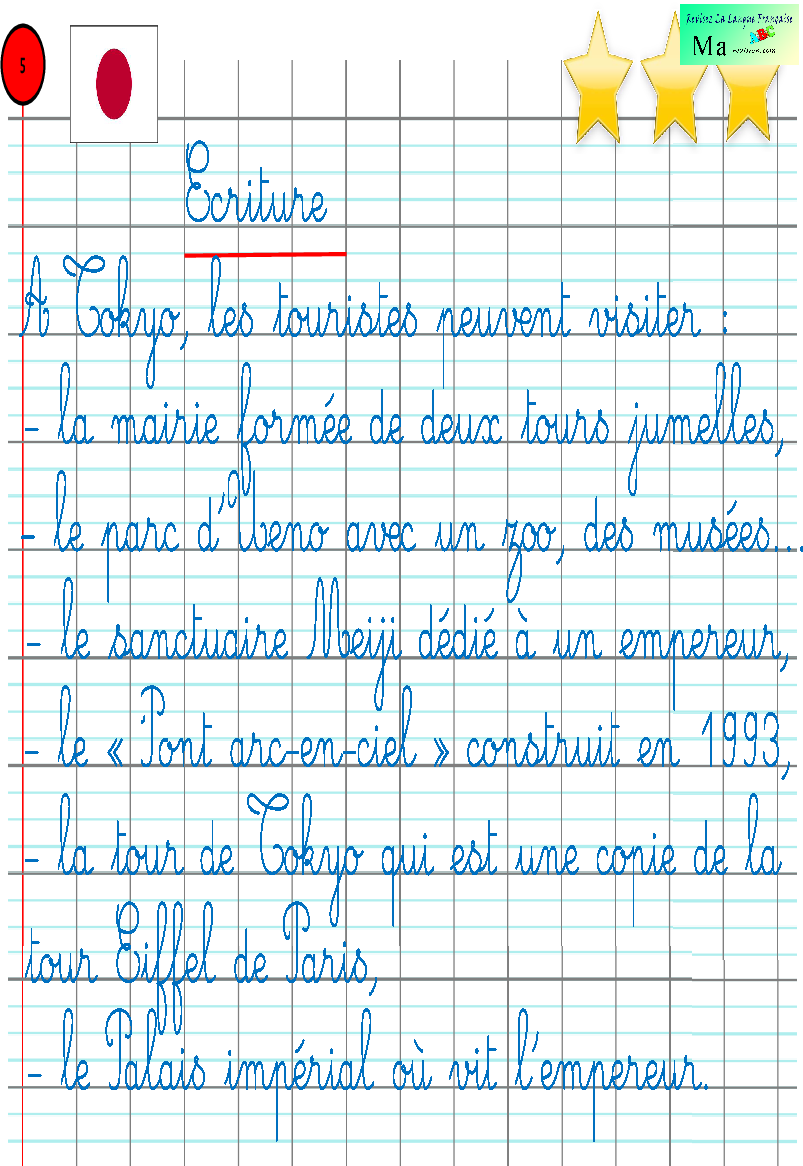 Revisez La Langue Française
5
Ma
revision.com
Ecriture
A Tokyo, les touristes peuvent visiter :
- la mairie formée de deux tours jumelles,
- le parc d'Ueno avec un zoo, des musées...
- le sanctuaire Meiji dédié à un empereur,
- le « Pont arc-en-ciel » construit en 1993,
- la tour de Tokyo qui est une copie de la
tour Eiffel de Paris,
- le Palais impérial où vit l'empereur.